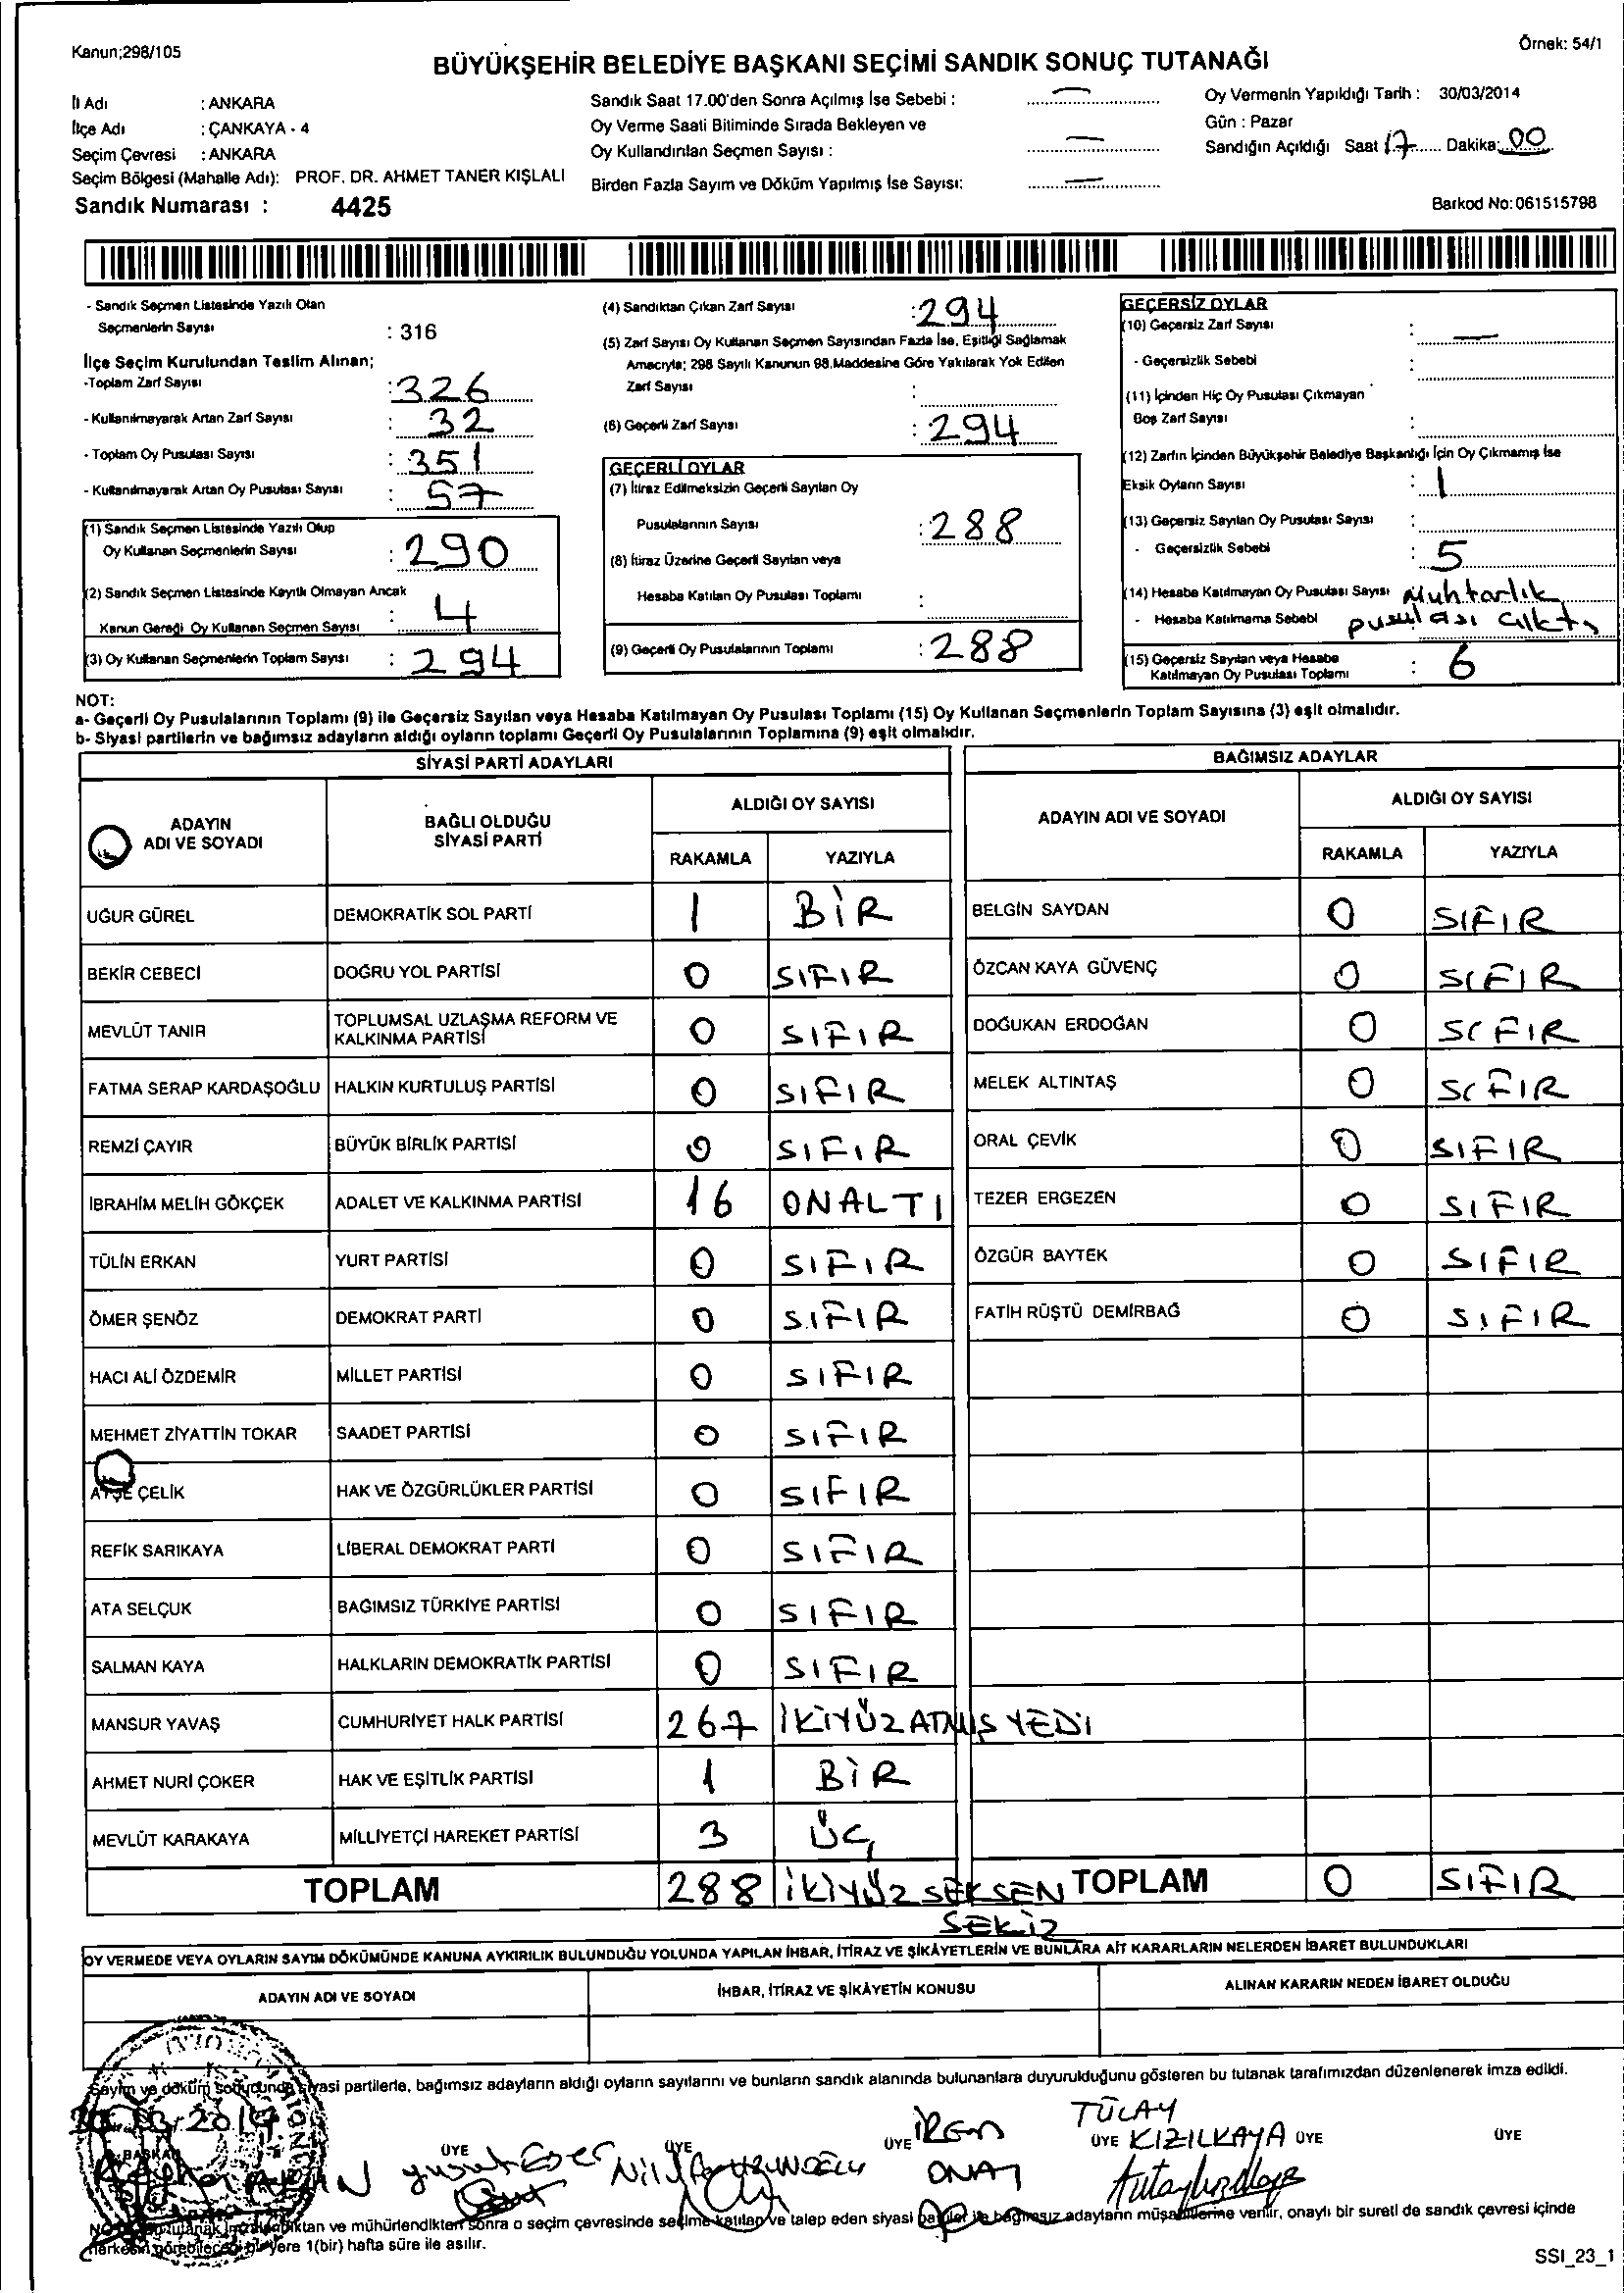 Kanun;298/105
Örnek: 54/1
BÜYÜKŞEHİR BELEDİYE BAŞKANI SEÇİMİ SANDIK SONUÇ TUTANAĞI
İl Adı : ANKARA
İlçe Adı : ÇANKAYA - 4
Seçim Çevresi : ANKARA
Seçim Bölgesi (Mahalle Adı): PROF. DR. AHMET TANER KIŞLALI
Sandık Numarası : 4425
Sandık Saat 17.00'den Sonra Açılmış İse Sebebi : —
Oy Verme Saati Bitiminde Sırada Bekleyen ve
Oy Kullandırılan Seçmen Sayısı : —
Birden Fazla Sayım ve Döküm Yapılmış İse Sayısı: —
Oy Vermenin Yapıldığı Tarih : 30/03/2014
Gün : Pazar
Sandığın Açıldığı Saat 17 Dakika: 00
Barkod No: 061515798
- Sandık Seçmen Listesinde Yazılı Olan
Seçmenlerin Sayısı : 316
İlçe Seçim Kurulundan Teslim Alınan;
-Toplam Zarf Sayısı : 326
- Kullanılmayarak Artan Zarf Sayısı : 32
- Toplam Oy Pusulası Sayısı : 351
- Kullanılmayarak Artan Oy Pusulası Sayısı : 57
(1) Sandık Seçmen Listesinde Yazılı Olup
Oy Kullanan Seçmenlerin Sayısı : 290
(2) Sandık Seçmen Listesinde Kayıtlı Olmayan Ancak
Kanun Gereği Oy Kullanan Seçmen Sayısı : 4
(3) Oy Kullanan Seçmenlerin Toplam Sayısı : 294
(4) Sandıktan Çıkan Zarf Sayısı : 294
(5) Zarf Sayısı Oy Kullanan Seçmen Sayısından Fazla İse, Eşitliği Sağlamak
Amacıyla; 298 Sayılı Kanunun 98.Maddesine Göre Yakılarak Yok Edilen
Zarf Sayısı :
(6) Geçerli Zarf Sayısı : 294
GEÇERLİ OYLAR
(7) İtiraz Edilmeksizin Geçerli Sayılan Oy
Pusulalarının Sayısı : 288
(8) İtiraz Üzerine Geçerli Sayılan veya
Hesaba Katılan Oy Pusulası Toplamı :
(9) Geçerli Oy Pusulalarının Toplamı : 288
GEÇERSİZ OYLAR
(10) Geçersiz Zarf Sayısı : —
- Geçersizlik Sebebi :
(11) İçinden Hiç Oy Pusulası Çıkmayan
Boş Zarf Sayısı :
(12) Zarfın İçinden Büyükşehir Belediye Başkanlığı İçin Oy Çıkmamış İse
Eksik Oyların Sayısı : 1
(13) Geçersiz Sayılan Oy Pusulası Sayısı :
- Geçersizlik Sebebi : 5
(14) Hesaba Katılmayan Oy Pusulası Sayısı Muhtarlık
- Hesaba Katılmama Sebebi pusulası çıktı
(15) Geçersiz Sayılan veya Hesaba
Katılmayan Oy Pusulası Toplamı : 6
NOT:
a- Geçerli Oy Pusulalarının Toplamı (9) ile Geçersiz Sayılan veya Hesaba Katılmayan Oy Pusulası Toplamı (15) Oy Kullanan Seçmenlerin Toplam Sayısına (3) eşit olmalıdır.
b- Siyasi partilerin ve bağımsız adayların aldığı oyların toplamı Geçerli Oy Pusulalarının Toplamına (9) eşit olmalıdır.
SİYASİ PARTİ ADAYLARI
ADAYIN ADI VE SOYADI
BAĞLI OLDUĞU SİYASİ PARTİ
ALDIĞI OY SAYISI
RAKAMLA YAZIYLA
UĞUR GÜREL DEMOKRATİK SOL PARTİ 1 BİR
BEKİR CEBECİ DOĞRU YOL PARTİSİ 0 SIFIR
MEVLÜT TANIR TOPLUMSAL UZLAŞMA REFORM VE KALKINMA PARTİSİ 0 SIFIR
FATMA SERAP KARDAŞOĞLU HALKIN KURTULUŞ PARTİSİ 0 SIFIR
REMZİ ÇAYIR BÜYÜK BİRLİK PARTİSİ 0 SIFIR
İBRAHİM MELİH GÖKÇEK ADALET VE KALKINMA PARTİSİ 16 ONALTI
TÜLİN ERKAN YURT PARTİSİ 0 SIFIR
ÖMER ŞENÖZ DEMOKRAT PARTİ 0 SIFIR
HACI ALİ ÖZDEMİR MİLLET PARTİSİ 0 SIFIR
MEHMET ZİYATTİN TOKAR SAADET PARTİSİ 0 SIFIR
AYŞE ÇELİK HAK VE ÖZGÜRLÜKLER PARTİSİ 0 SIFIR
REFİK SARIKAYA LİBERAL DEMOKRAT PARTİ 0 SIFIR
ATA SELÇUK BAĞIMSIZ TÜRKİYE PARTİSİ 0 SIFIR
SALMAN KAYA HALKLARIN DEMOKRATİK PARTİSİ 0 SIFIR
MANSUR YAVAŞ CUMHURİYET HALK PARTİSİ 267 İKİYÜZATMIŞYEDİ
AHMET NURİ ÇOKER HAK VE EŞİTLİK PARTİSİ 1 BİR
MEVLÜT KARAKAYA MİLLİYETÇİ HAREKET PARTİSİ 3 ÜÇ
TOPLAM 288 İKİYÜZ SEKSEN SEKİZ
BAĞIMSIZ ADAYLAR
ADAYIN ADI VE SOYADI
ALDIĞI OY SAYISI
RAKAMLA YAZIYLA
BELGİN SAYDAN 0 SIFIR
ÖZCAN KAYA GÜVENÇ 0 SIFIR
DOĞUKAN ERDOĞAN 0 SIFIR
MELEK ALTINTAŞ 0 SIFIR
ORAL ÇEVİK 0 SIFIR
TEZER ERGEZEN 0 SIFIR
ÖZGÜR BAYTEK 0 SIFIR
FATİH RÜŞTÜ DEMİRBAĞ 0 SIFIR
TOPLAM 0 SIFIR
OY VERMEDE VEYA OYLARIN SAYIM DÖKÜMÜNDE KANUNA AYKIRILIK BULUNDUĞU YOLUNDA YAPILAN İHBAR, İTİRAZ VE ŞİKÂYETLERİN VE BUNLARA AİT KARARLARIN NELERDEN İBARET BULUNDUKLARI
ADAYIN ADI VE SOYADI İHBAR, İTİRAZ VE ŞİKÂYETİN KONUSU ALINAN KARARIN NEDEN İBARET OLDUĞU
Sayım ve döküm sonucunda siyasi partilerle, bağımsız adayların aldığı oyların sayılarını ve bunların sandık alanında bulunanlara duyurulduğunu gösteren bu tutanak tarafımızdan düzenlenerek imza edildi.
30.03.2014
BAŞKAN ÜYE ÜYE ÜYE ÜYE ÜYE ÜYE
İREM ONAT
TÜLAY KIZILKAYA
iktan ve mühürlendikten sonra o seçim çevresinde seçime katılan ve talep eden siyasi partiler ile bağımsız adayların müşahitlerine verilir, onaylı bir sureti de sandık çevresi içinde
herkesin görebileceği bir yere 1(bir) hafta süre ile asılır.
SSI_23_1